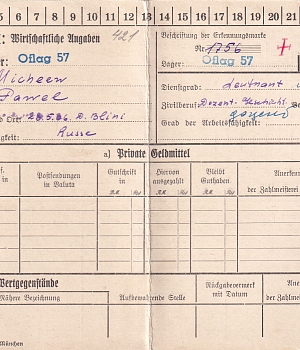 6 7 8 9 10 11 12 13 14 15 16 17 18 19 20 21
: Wirtschaftliche Angaben
421
Beschriftung der Erkennungsmarke
r: Oflag 57
Nr. 1756
Lager: Oflag 57
Micheew
Pawel
Dienstgrad: Leutnant
28.5.06 D. Blini
Zivilberuf: Dozent
Grad der Arbeitsfähigkeit:
gkeit: Russe
a) Private Geldmittel
f. in
Postsendungen in Valuta
Gutschrift in
Hiervon ausgezahlt
Bleibt Guthaben
Anerkenn
der Zahlmeisterei
Wertgegenstände
Nähere Bezeichnung
Aufbewahrende Stelle
Rückgabevermerk mit Datum
Anerken
der Zahlmeisterei
München